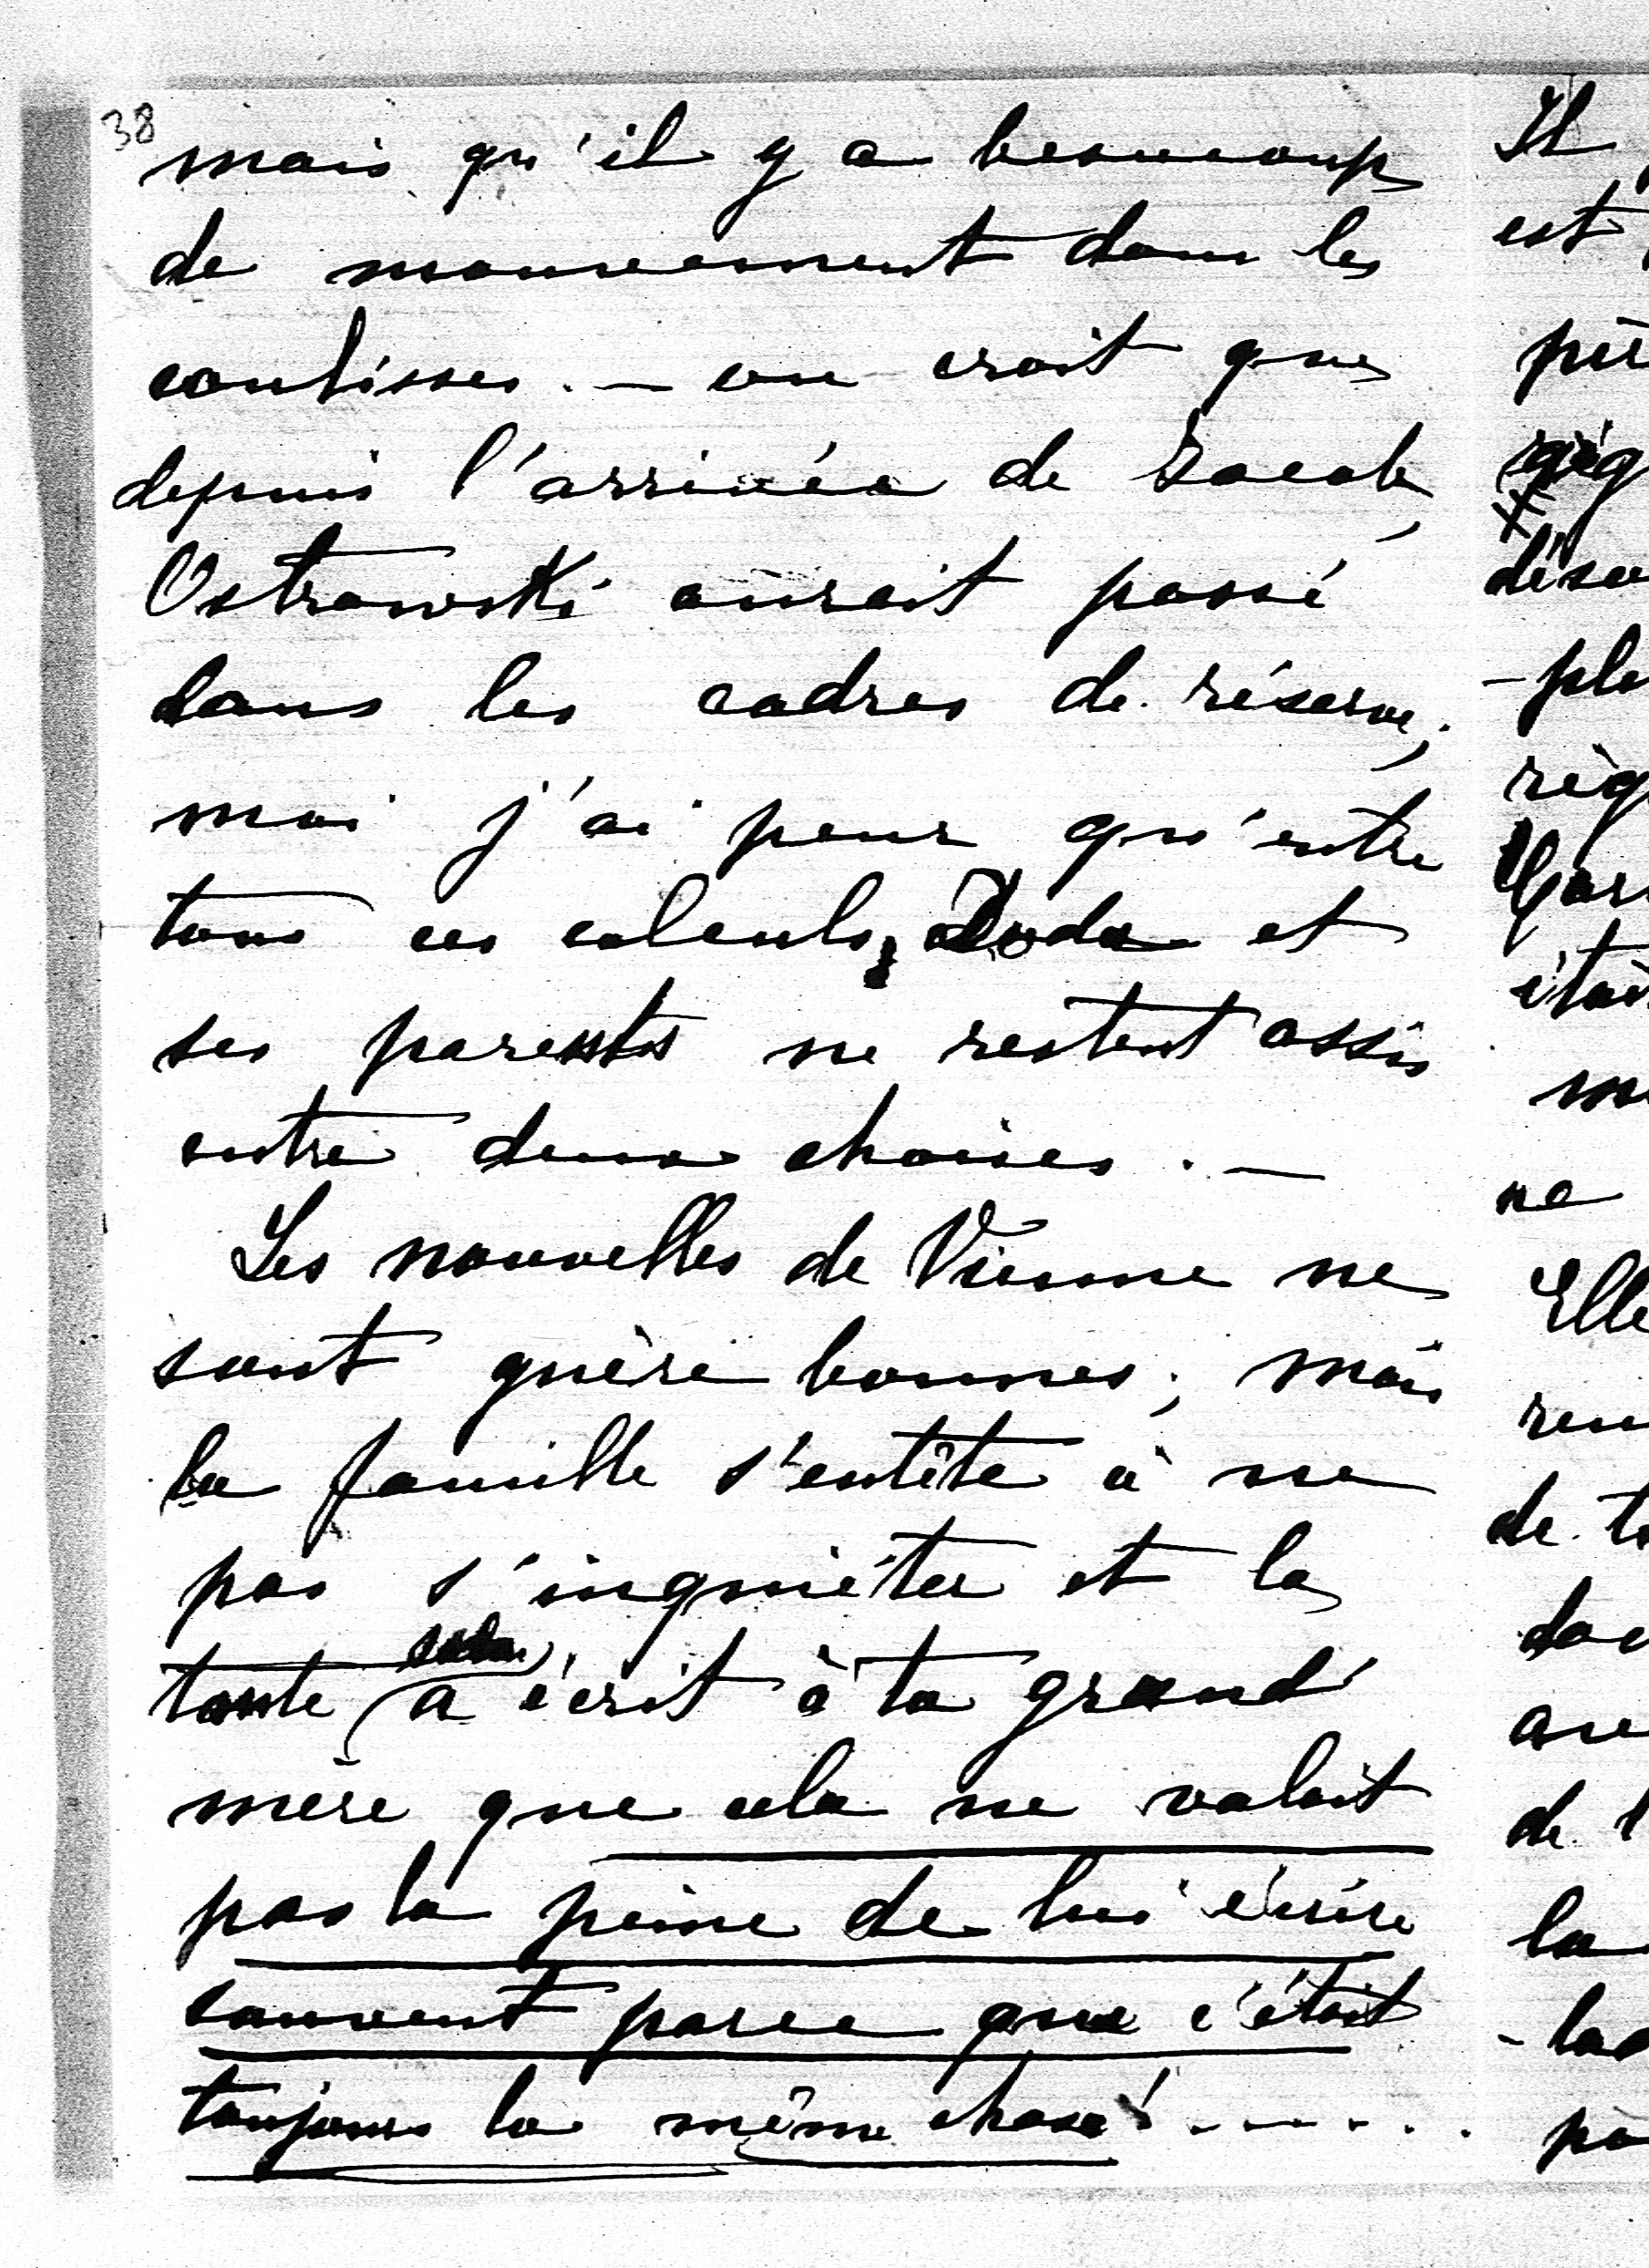 38
mais qu'il y a beaucoup
de mouvement dans les
coulisses. — on croit que
depuis l'arrivée de
Ostrowski aurait passé
dans les cadres de réserve;
moi j'ai peur qu'entre
tous ces calculs, Doda et
ses parents ne restent assis
entre deux chaises. —
Les nouvelles de Vienne ne
sont guère bonnes; mais
la famille s'entête à ne
pas s'inquiéter et la
tante a écrit à ta grand
mère que cela ne valait
pas la peine de lui écrire
souvent parce que c'était
toujours la même chose! ......
Il
est
pèr
règ
Gar
étai
ne
Elle
de t
de l
la